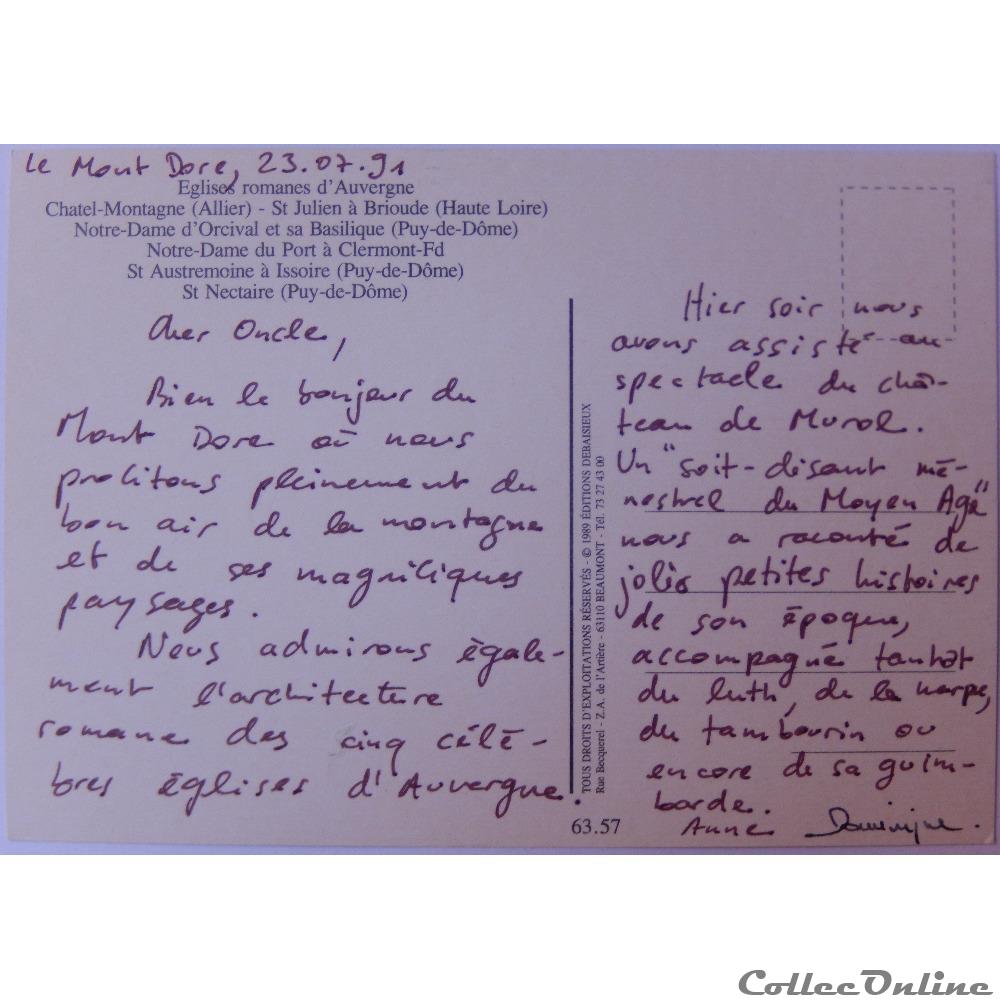 Le Mont Dore, 23.07.91
Eglises romanes d'Auvergne
Chatel-Montagne (Allier) - St Julien à Brioude (Haute Loire)
Notre-Dame d'Orcival et sa Basilique (Puy-de-Dôme)
Notre-Dame du Port à Clermont-Fd
St Austremoine à Issoire (Puy-de-Dôme)
St Nectaire (Puy-de-Dôme)
Cher Oncle,
Bien le bonjour du
Mont Dore où nous
profitons pleinement du
bon air de la montagne
et de ses magnifiques
paysages.
Nous admirons égale-
ment l'architecture
romane des cinq célè-
bres églises d'Auvergne.
TOUS DROITS D'EXPLOITATIONS RÉSERVÉS - © 1989 ÉDITIONS DEBAISIEUX
Rue Becquerel - Z.A. de l'Artière - 63110 BEAUMONT - Tél. 73 27 43 00
63.57
Hier soir nous
avons assisté au
spectacle du châ-
teau de Murol.
Un "soit-disant mé-
nestrel du Moyen Age"
nous a raconté de
jolis petites histoires
de son époque,
accompagné tantôt
du luth, de la harpe,
du tambourin ou
encore de sa guim-
barde.
Anne Dominique.
CollecOnline